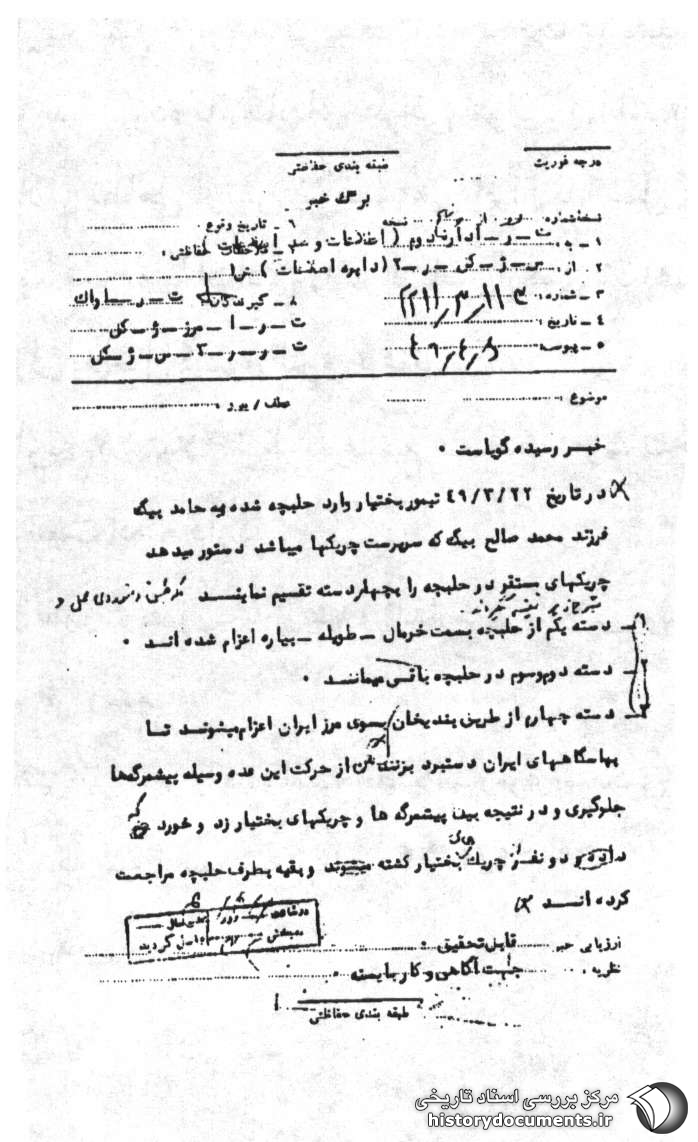 درجه فوریت
طبقه بندی حفاظتی
برگ خبر
نسخه شماره: از نسخه
۶ ـ تاریخ وقوع:
۱ ـ به: ت ـ ر ـ اداره دوم (اطلاعات و ضد اطلاعات)
۷ ـ ملاحظات حفاظتی:
۲ ـ از: س ـ ژ ـ کل ـ ر ـ ۲ (دایره اطلاعات)
۳ ـ شماره:
۸ ـ گیرندگان: ت ـ ر ـ ساواک
۴ ـ تاریخ:
ت ـ ر ـ ا ـ مرز ـ ژ ـ کل
۵ ـ پیوست: ۴۹/۴/۸
ت ـ ر ـ ر ـ ۳ ـ س ـ ژ ـ کل
موضوع:
عطف / پیرو:
خبر رسیده گویاست.
در تاریخ ۴۹/۳/۲۲ تیمور بختیار وارد حلبچه شده و به حامد بیگ
فرزند محمد صالح بیگ که سرپرست چریکها میباشد دستور میدهد
چریکهای مستقر در حلبچه را بچهار دسته تقسیم نمایند
۱ـ دسته یکم از حلبچه بسمت خرمال ـ طویله ـ بیاره اعزام شده اند.
۲ـ دسته دوم و سوم در حلبچه باقی میمانند.
۳ـ دسته چهارم از طریق بندیخان بسوی مرز ایران اعزام میشوند تا
بپاسگاههای ایران دستبرد بزنند از حرکت این عده وسیله پیشمرگه‌ها
جلوگیری و در نتیجه بین پیشمرگه ها و چریکهای بختیار زد و خورد
داده و دو نفر از چریک های بختیار کشته میشوند و بقیه بطرف حلبچه مراجعت
کرده اند
ارزیابی خبر قابل تحقیق.
نظریه. جهت آگاهی و کار بایسته.
طبقه بندی حفاظتی
مرکز بررسی اسناد تاریخی
historydocuments.ir